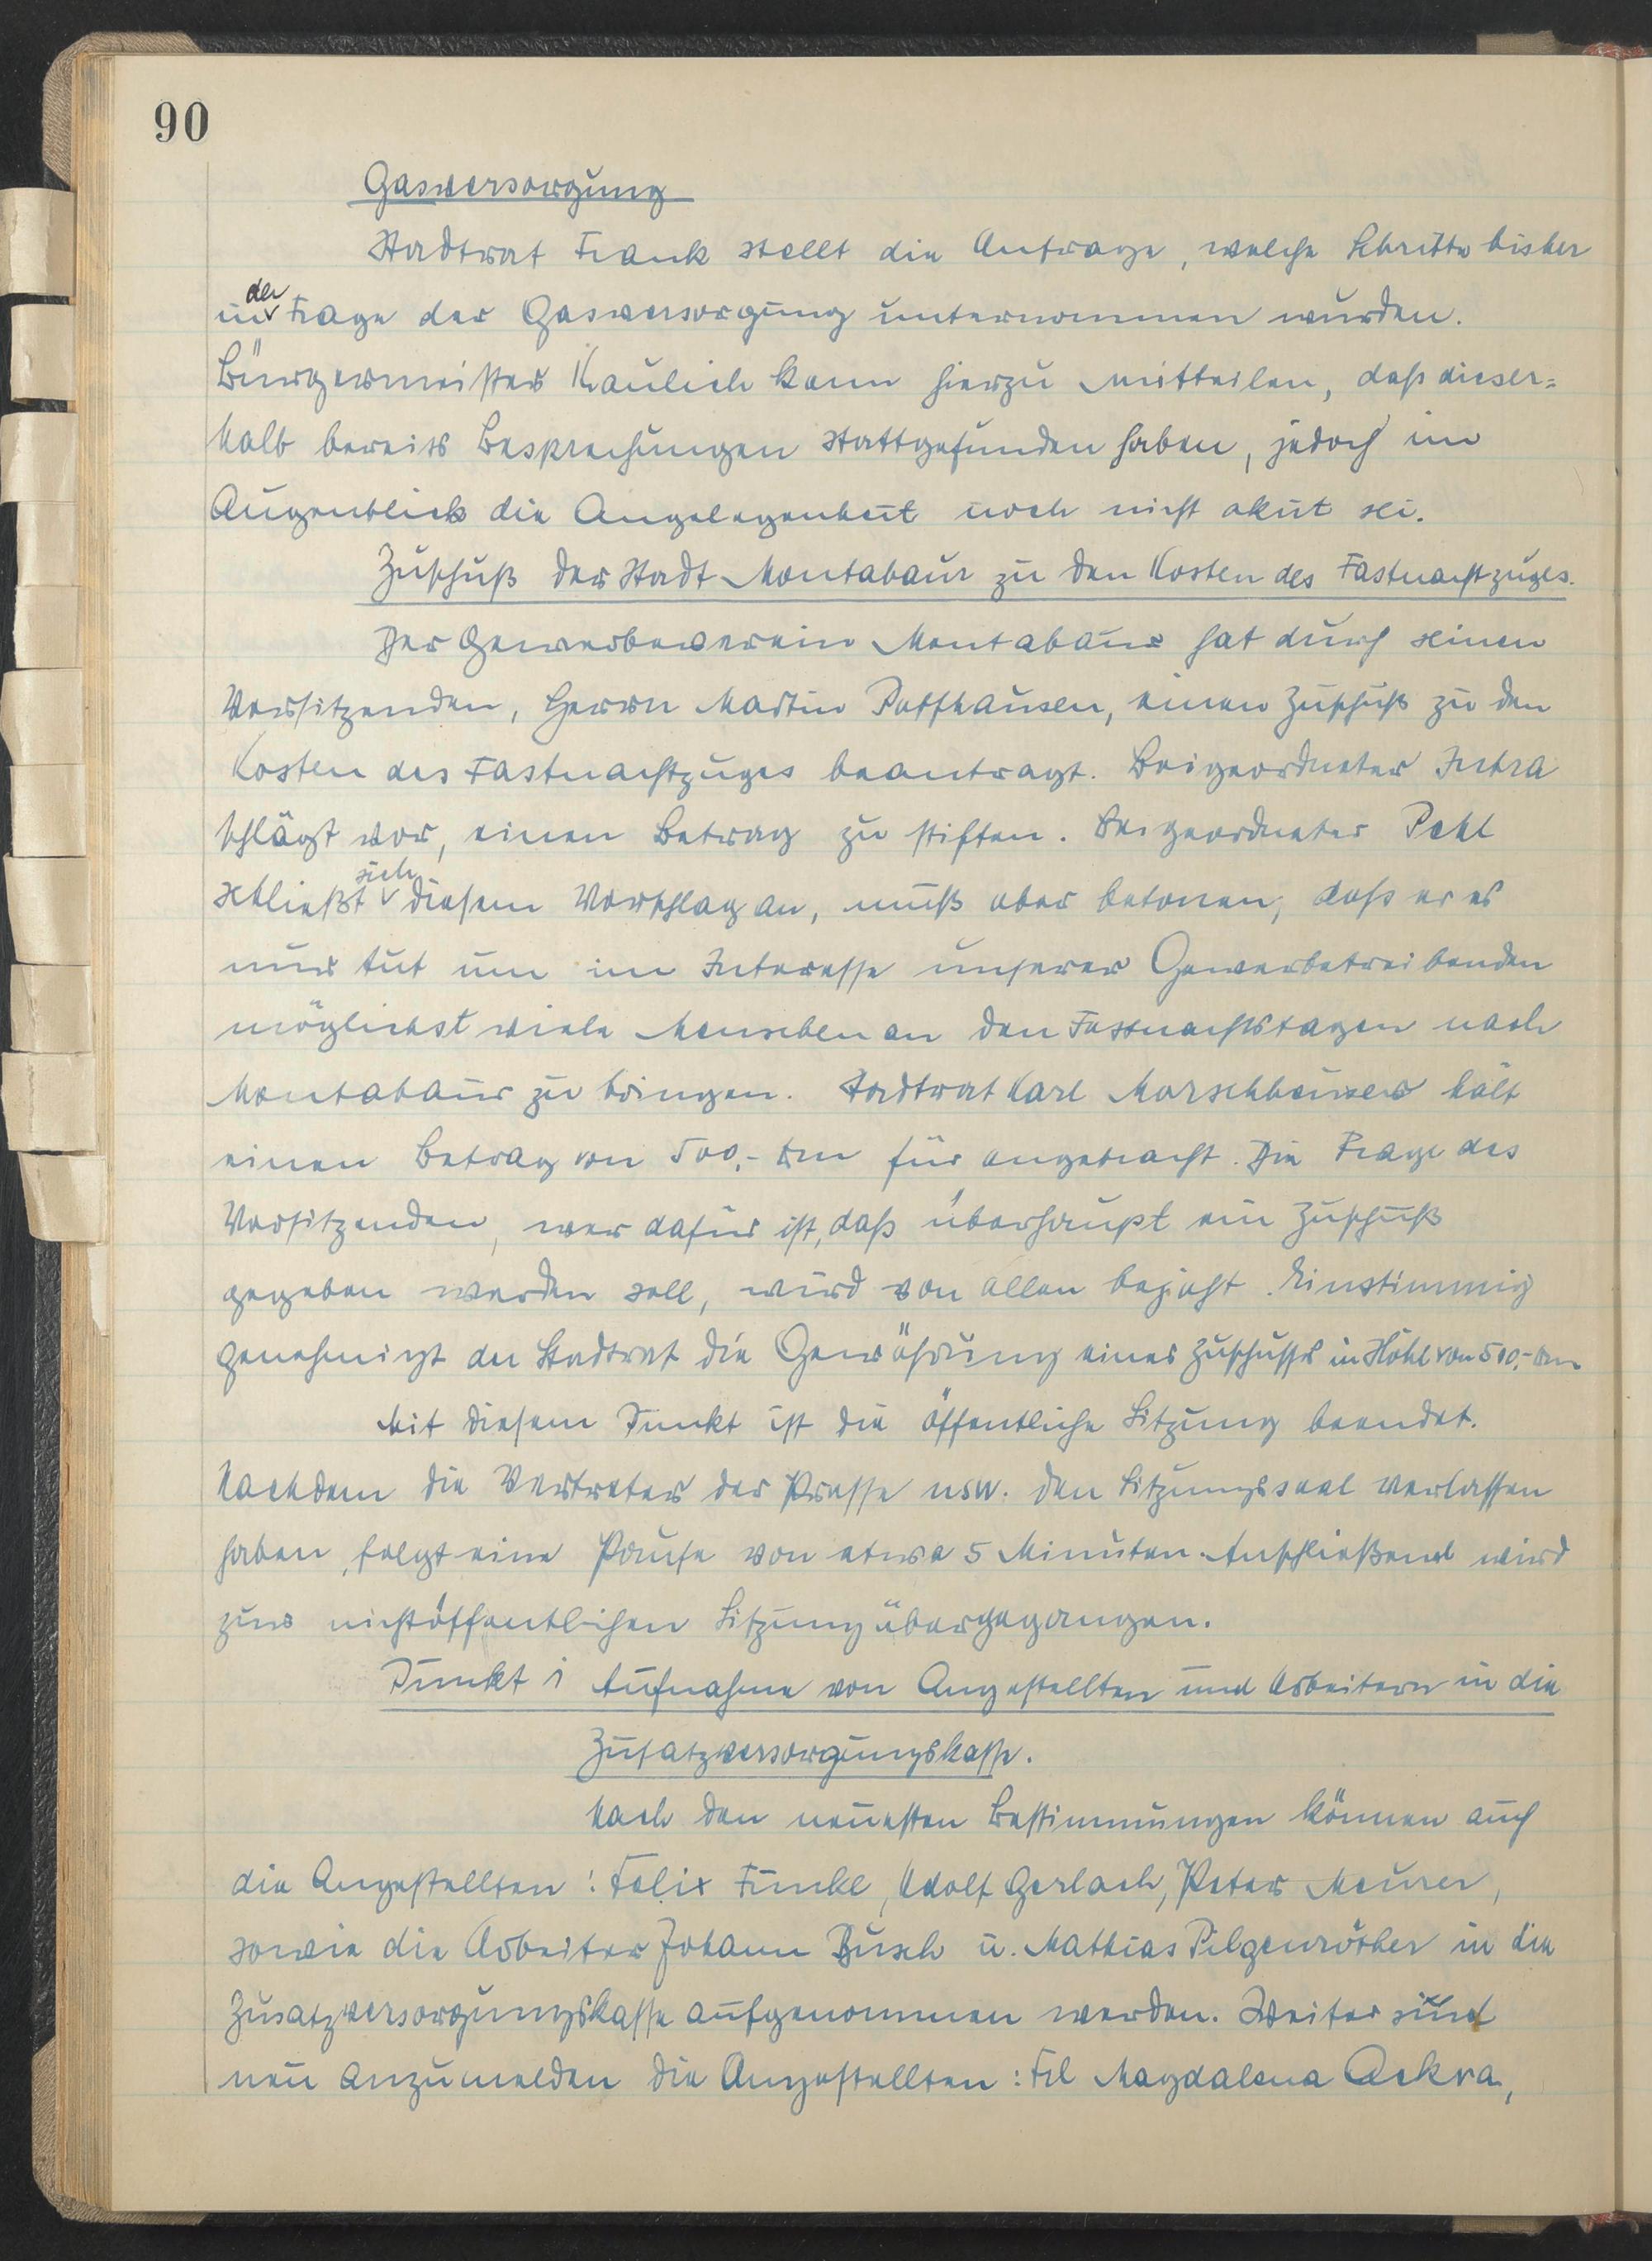 90
Gasversorgung
Stadtrat Frank stellt die Anfrage, welche Schritte bisher
in der Frage der Gasversorgung unternommen wurden.
Bürgermeister Kaulich kann hierzu mitteilen, daß dieser=
halb bereits Besprechungen stattgefunden haben, jedoch im
Augenblick die Angelegenheit noch nicht akut sei.
Zuschuß der Stadt Montabaur zu den Kosten des Fastnachtzuges.
Der Gewerbeverein Montabaur hat durch seinen
Vorsitzenden, Herrn Martin Posthausen, einen Zuschuß zu den
Kosten des Fastnachtzuges beantragt. Beigeordneter Intra
schlägt vor, einen Betrag zu stiften. Beigeordneter Pehl
schließt sich diesem Vorschlag an, muß aber betonen, daß er es
nur tut um im Interesse unserer Gewerbetreibenden
möglichst viele Menschen an den Fastnachtstagen nach
Montabaur zu bringen. Stadtrat Karl Marschhäuser hält
einen Betrag von 500,- Dm für angebracht. Die Frage des
Vorsitzenden, wer dafür ist, daß überhaupt ein Zuschuß
gegeben werden soll, wird von allen bejaht. Einstimmig
genehmigt der Stadtrat die Gewährung eines Zuschusses in Höhe von 500,- Dm
Mit diesem Punkt ist die öffentliche Sitzung beendet.
Nachdem die Vertreter der Presse usw. den Sitzungssaal verlassen
haben, folgt eine Pause von etwa 5 Minuten. Anschließend wird
zur nichtöffentlichen Sitzung übergegangen.
Punkt 1 Aufnahme von Angestellten und Arbeitern in die
Zusatzversorgungskasse.
Nach den neuesten Bestimmungen können auch
die Angestellten: Felix Funke, Adolf Gerlach, Peter Meurer,
sowie die Arbeiter Johann Busch u. Mathias Pilgenröther in die
Zusatzversorgungskasse aufgenommen werden. Weiter sind
neu anzumelden die Angestellten: Frl Magdalena Ackva,